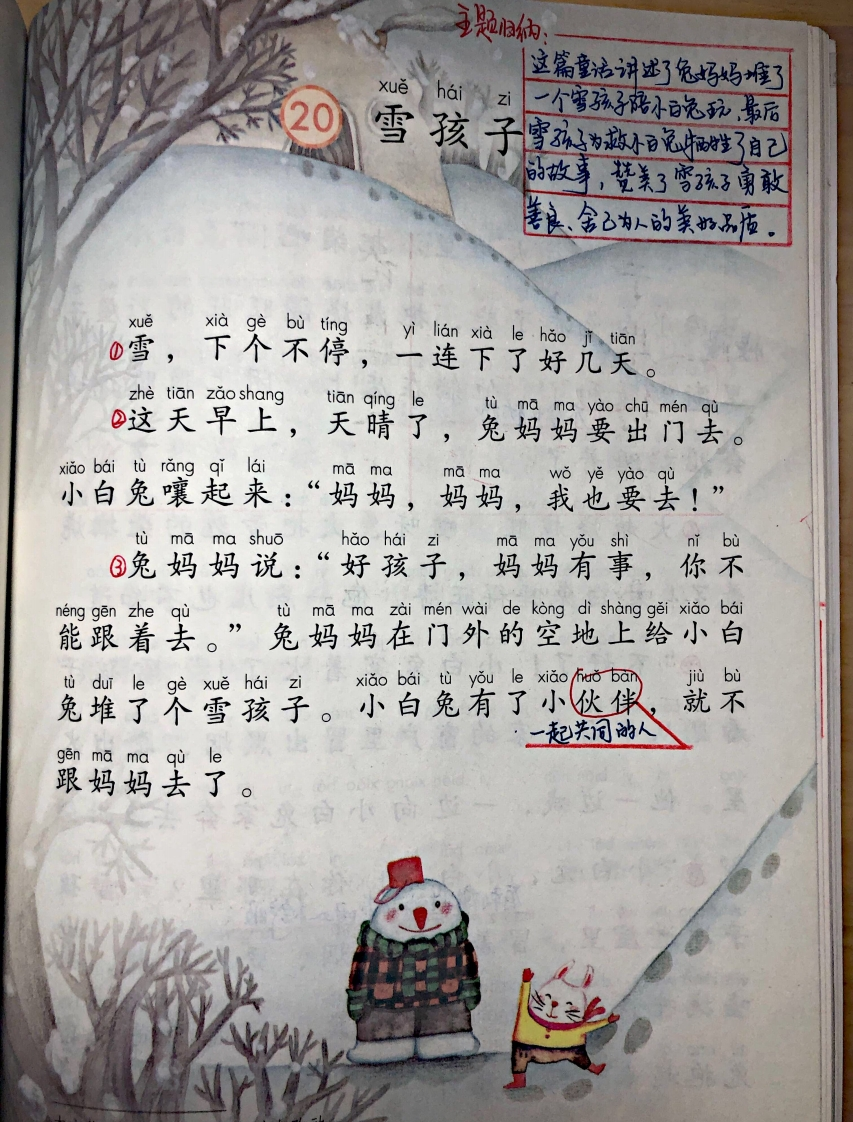 主题归纳：
这篇童话讲述了兔妈妈堆了
一个雪孩子陪小白兔玩，最后
雪孩子为救小白兔牺牲了自己
的故事，赞美了雪孩子勇敢
善良、舍己为人的美好品质。
xuě hái zi
20 雪孩子
xuě xià gè bù tíng yì lián xià le hǎo jǐ tiān
①雪，下个不停，一连下了好几天。
zhè tiān zǎo shang tiān qíng le tù mā ma yào chū mén qù
②这天早上，天晴了，兔妈妈要出门去。
xiǎo bái tù rǎng qǐ lái mā ma mā ma wǒ yě yào qù
小白兔嚷起来：“妈妈，妈妈，我也要去！”
tù mā ma shuō hǎo hái zi mā ma yǒu shì nǐ bù
③兔妈妈说：“好孩子，妈妈有事，你不
néng gēn zhe qù tù mā ma zài mén wài de kòng dì shàng gěi xiǎo bái
能跟着去。”兔妈妈在门外的空地上给小白
tù duī le gè xuě hái zi xiǎo bái tù yǒu le xiǎo huǒ bàn jiù bù
兔堆了个雪孩子。小白兔有了小伙伴，就不
一起共同的人
gēn mā ma qù le
跟妈妈去了。